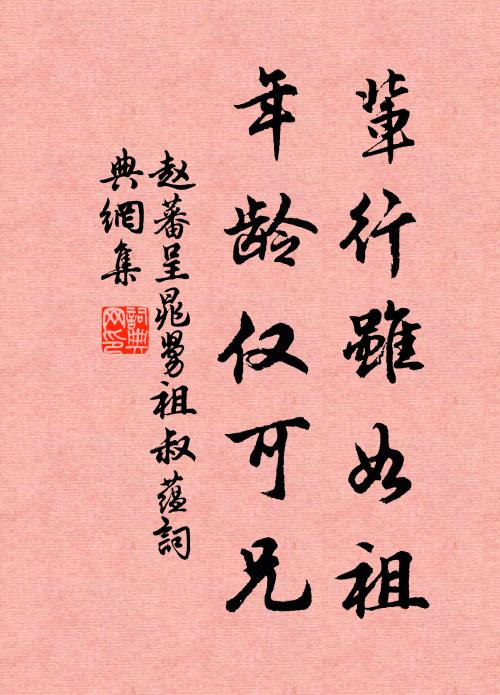 輩行雖如祖
年龄仅可兄
赵蕃呈晁舅祖叔蕴詞
典網集
詞典
网印